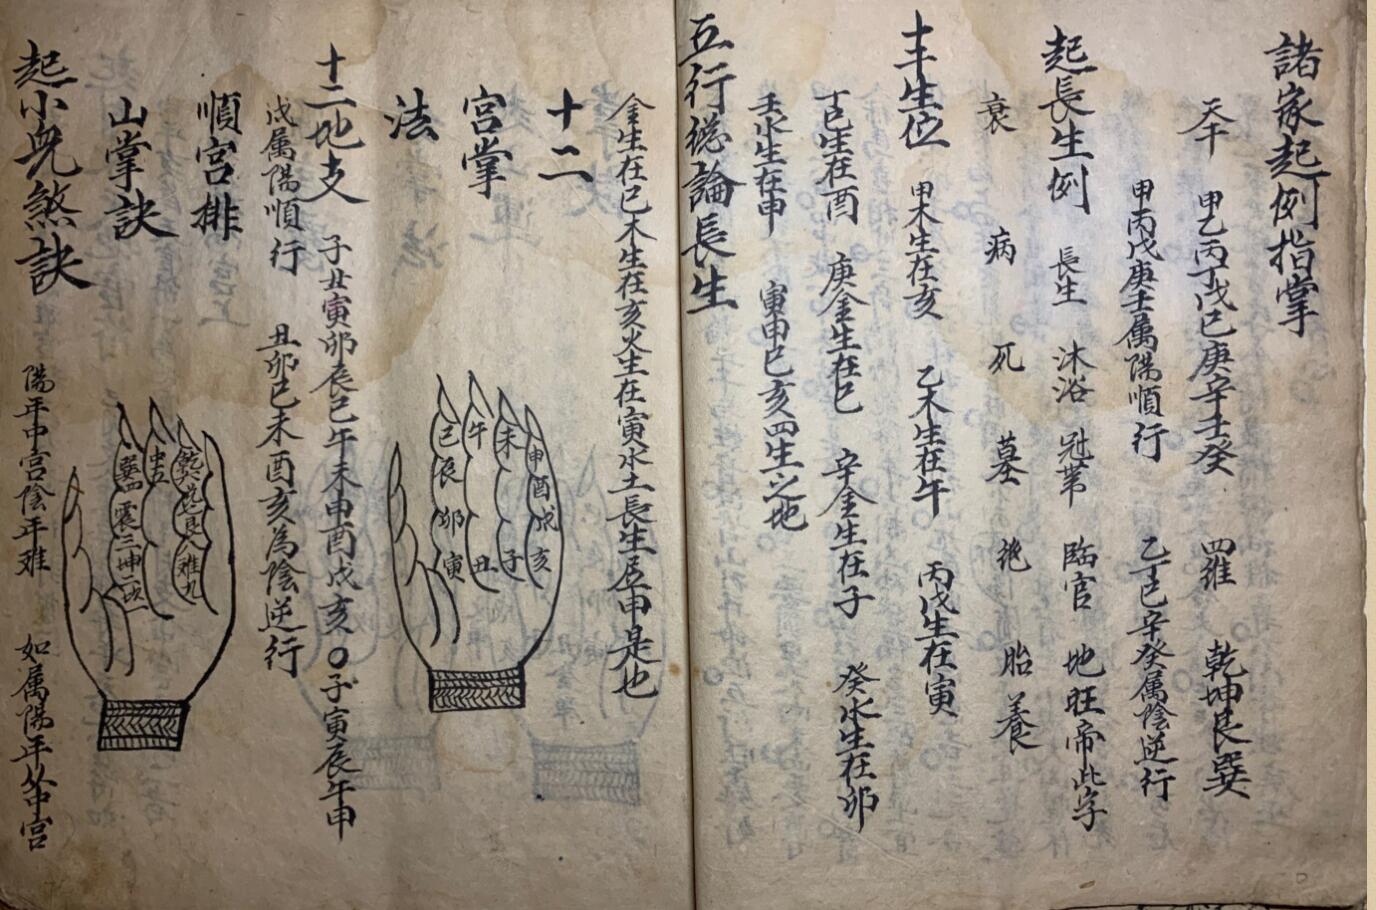 諸家起例指掌
天干 甲乙丙丁戊己庚辛壬癸 四維 乾坤艮巽
甲丙戊庚壬属陽順行 乙丁己辛癸属陰逆行
起長生例 長生 沐浴 冠帯 臨官 地旺帝此字
衰 病 死 墓 絶 胎 養
十干生位 甲木生在亥 乙木生在午 丙戊生在寅
丁己生在酉 庚金生在巳 辛金生在子 癸水生在卯
壬水生在申 寅申巳亥四生之地
五行總論長生
金生在巳木生在亥火生在寅水土長生居申是也
十二
宮掌
法
巳 午 未 申
辰 酉
卯 戌
寅 丑 子 亥
十二地支 子丑寅卯辰巳午未申酉戌亥〇子寅辰午申
戌属陽順行 丑卯巳未酉亥為陰逆行
順宮排
山掌訣
中五 乾六
震三 艮
坤二 离九
起小兒煞訣 陽年中宮陰年难 如属陽年从中宮